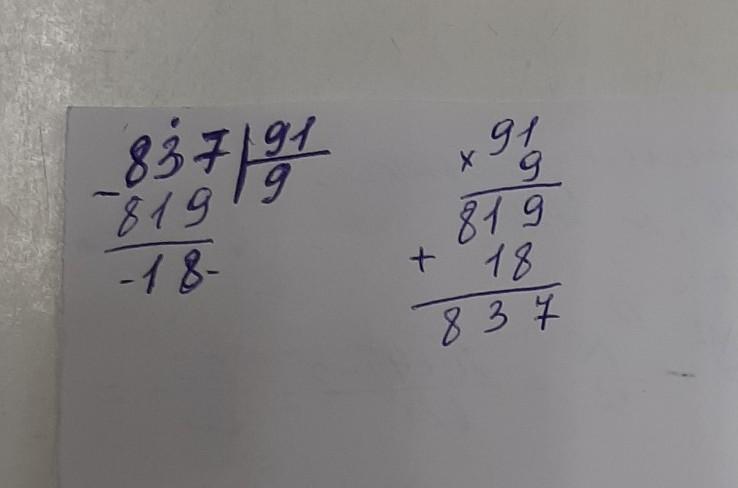 837 91
- 9
819
-18-
91
× 9
819
+ 18
837